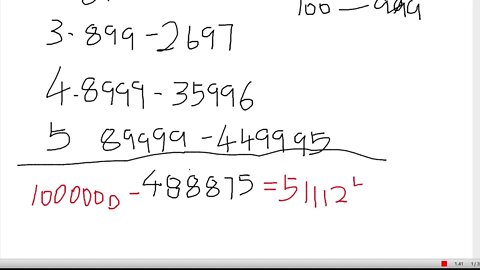 100 — 999
3. 899 - 2697
4. 8999 - 35996
5 89999 - 449995
1000000 - 488875 = 51112
1:41 1/3